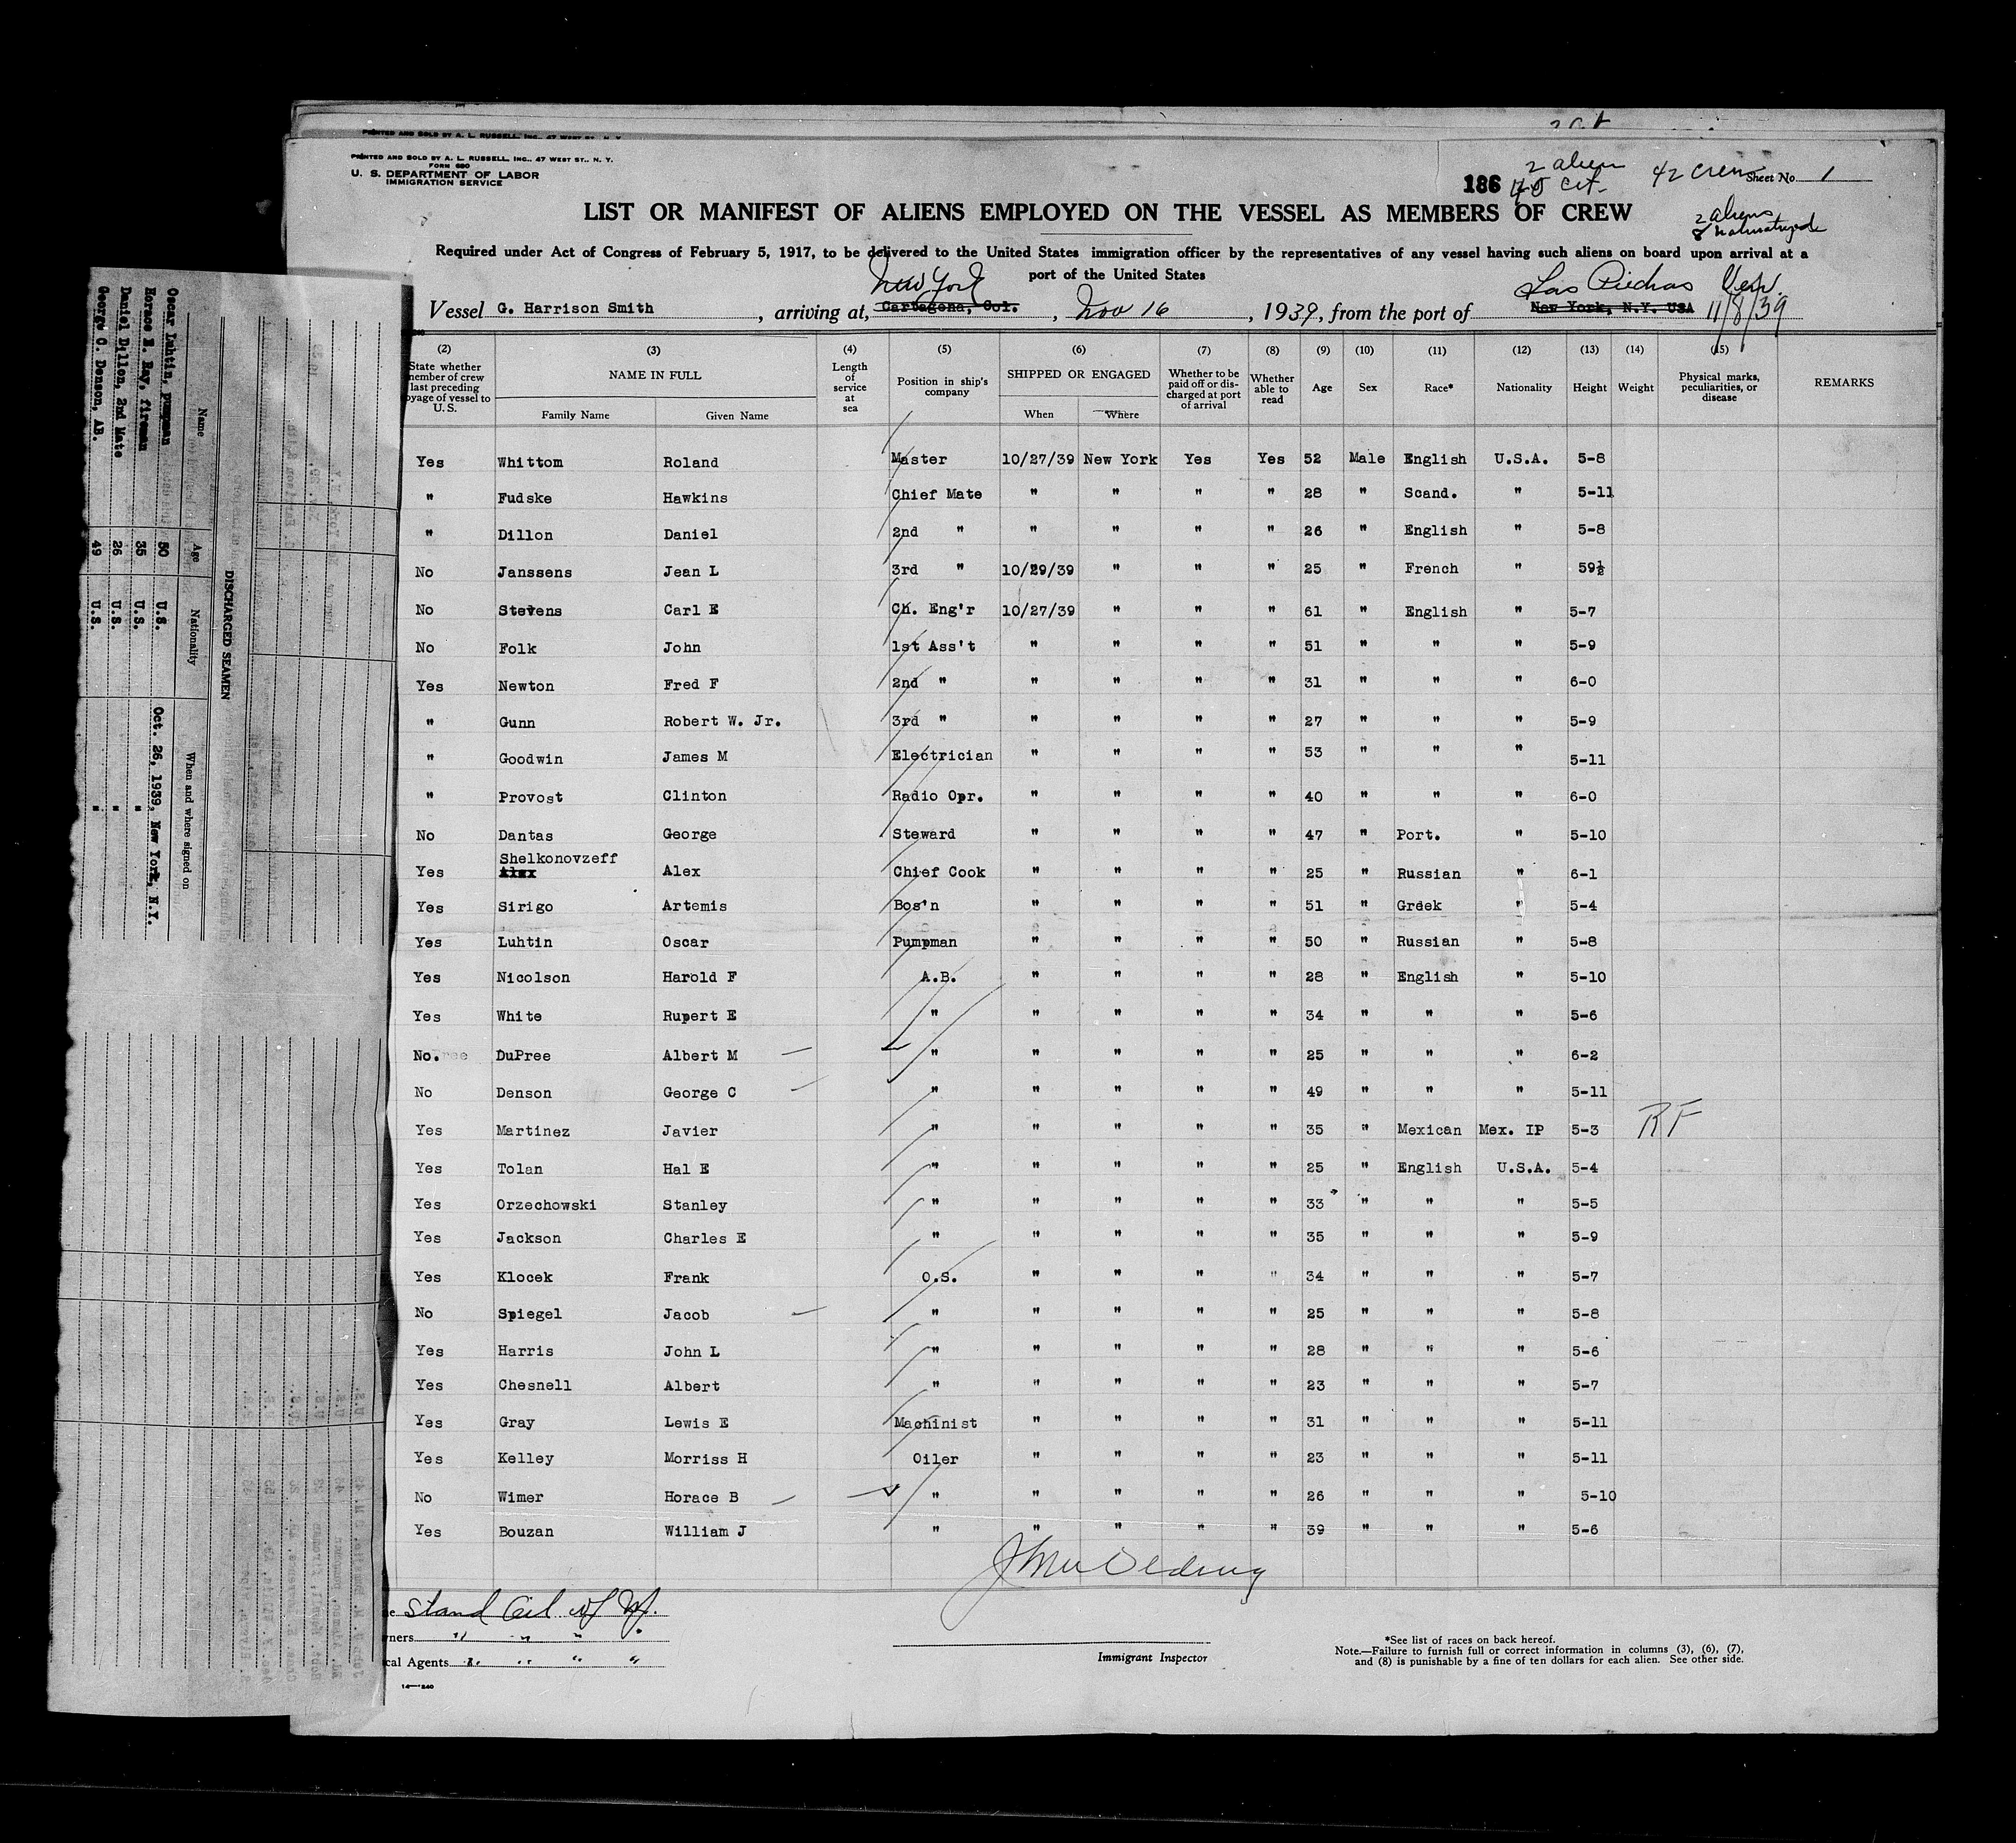 PRINTED AND SOLD BY A. L. RUSSELL, INC., 47 WEST ST., N. Y.
PRINTED AND SOLD BY A. L. RUSSELL, INC., 47 WEST ST., N. Y.
FORM 680
U. S. DEPARTMENT OF LABOR
IMMIGRATION SERVICE
186 2 alien 42 crew Sheet No. 1
40 cit.
LIST OR MANIFEST OF ALIENS EMPLOYED ON THE VESSEL AS MEMBERS OF CREW
2 aliens
8 naturalized
Required under Act of Congress of February 5, 1917, to be delivered to the United States immigration officer by the representatives of any vessel having such aliens on board upon arrival at a
port of the United States
New York Las Piedras Ven.
Vessel G. Harrison Smith, arriving at, Cartagena, Col., Nov 16, 1939, from the port of New York, N.Y. USA 11/8/39
(2) (3) (4) (5) (6) (7) (8) (9) (10) (11) (12) (13) (14) (15)
State whether member of crew last preceding voyage of vessel to U. S. NAME IN FULL Length of service at sea Position in ship's company SHIPPED OR ENGAGED Whether to be paid off or discharged at port of arrival Whether able to read Age Sex Race* Nationality Height Weight Physical marks, peculiarities, or disease REMARKS
Family Name Given Name When Where
Yes Whittom Roland Master 10/27/39 New York Yes Yes 52 Male English U.S.A. 5-8
" Fudske Hawkins Chief Mate " " " " 28 " Scand. " 5-11
" Dillon Daniel 2nd " " " " " 26 " English " 5-8
No Janssens Jean L 3rd " 10/29/39 " " " 25 " French " 59½
No Stevens Carl E Ch. Eng'r 10/27/39 " " " 61 " English " 5-7
No Folk John 1st Ass't " " " " 51 " " " 5-9
Yes Newton Fred F 2nd " " " " " 31 " " " 6-0
" Gunn Robert W. Jr. 3rd " " " " " 27 " " " 5-9
" Goodwin James M Electrician " " " " 53 " " " 5-11
" Provost Clinton Radio Opr. " " " " 40 " " " 6-0
No Dantas George Steward " " " " 47 " Port. " 5-10
Shelkonovzeff
Yes Alex Alex Chief Cook " " " " 25 " Russian " 6-1
Yes Sirigo Artemis Bos'n " " " " 51 " Greek " 5-4
Yes Luhtin Oscar Pumpman " " " " 50 " Russian " 5-8
Yes Nicolson Harold F A.B. " " " " 28 " English " 5-10
Yes White Rupert E " " " " " 34 " " " 5-6
No. DuPree Albert M " " " " " 25 " " " 6-2
No Denson George C " " " " " 49 " " " 5-11
Yes Martinez Javier " " " " " 35 " Mexican Mex. IP 5-3 RF
Yes Tolan Hal E " " " " " 25 " English U.S.A. 5-4
Yes Orzechowski Stanley " " " " " 33 " " " 5-5
Yes Jackson Charles E " " " " " 35 " " " 5-9
Yes Klocek Frank O.S. " " " " 34 " " " 5-7
No Spiegel Jacob " " " " " 25 " " " 5-8
Yes Harris John L " " " " " 28 " " " 5-6
Yes Chesnell Albert " " " " " 23 " " " 5-7
Yes Gray Lewis E Machinist " " " " 31 " " " 5-11
Yes Kelley Morriss H Oiler " " " " 23 " " " 5-11
No Wimer Horace B " " " " " 26 " " " 5-10
Yes Bouzan William J " " " " " 39 " " " 5-6
Stand Oil of NJ.
ners " " " "
cal Agents " " " "
14—1240
Immigrant Inspector
*See list of races on back hereof.
Note.—Failure to furnish full or correct information in columns (3), (6), (7),
and (8) is punishable by a fine of ten dollars for each alien. See other side.
DISCHARGED SEAMEN
Name Age Nationality When and where signed on
Oscar Luhtin, pumpman 50 U.S. Oct. 26, 1939, New York, N.Y.
Horace E. Ray, fireman 35 U.S. "
Daniel Dillon, 2nd Mate 26 U.S. "
George C. Denson, AB. 49 U.S. "